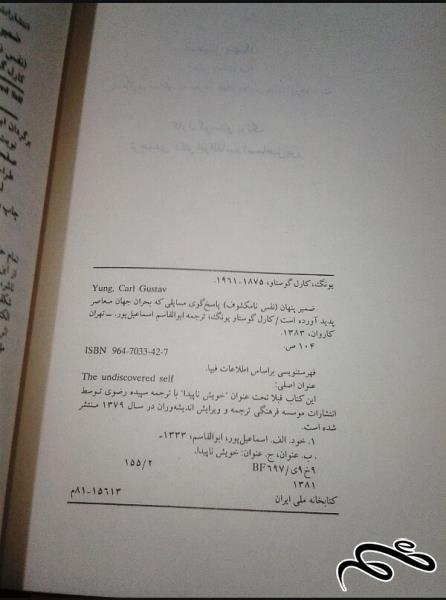 یونگ، کارل گوستاو، ۱۸۷۵ـ۱۹۶۱.
Yung, Carl Gustav
ضمیر پنهان (نفس نامکشوف) پاسخ‌گوی مسایلی که بحران جهان معاصر
پدید آورده است / کارل گوستاو یونگ، ترجمه ابوالقاسم اسماعیل‌پور. ـ تهران
کاروان، ۱۳۸۳.
۱۰۴ ص.
ISBN 964-7033-42-7
فهرستنویسی براساس اطلاعات فیپا.
The undiscovered self
عنوان اصلی:
این کتاب قبلا تحت عنوان "خویش ناپیدا" با ترجمه سپیده رضوی توسط
انتشارات موسسه فرهنگی ترجمه و ویرایش اندیشه‌وران در سال ۱۳۷۹ منتشر
شده است.
۱. خود. الف. اسماعیل‌پور، ابوالقاسم، ۱۳۳۳ـ
. ب. عنوان. ج. عنوان: خویش ناپیدا.
۹خ۹ی/BF۶۹۷ ۱۵۵/۲
۱۳۸۱
کتابخانه ملی ایران ۸۱-۱۵۶۱۳م